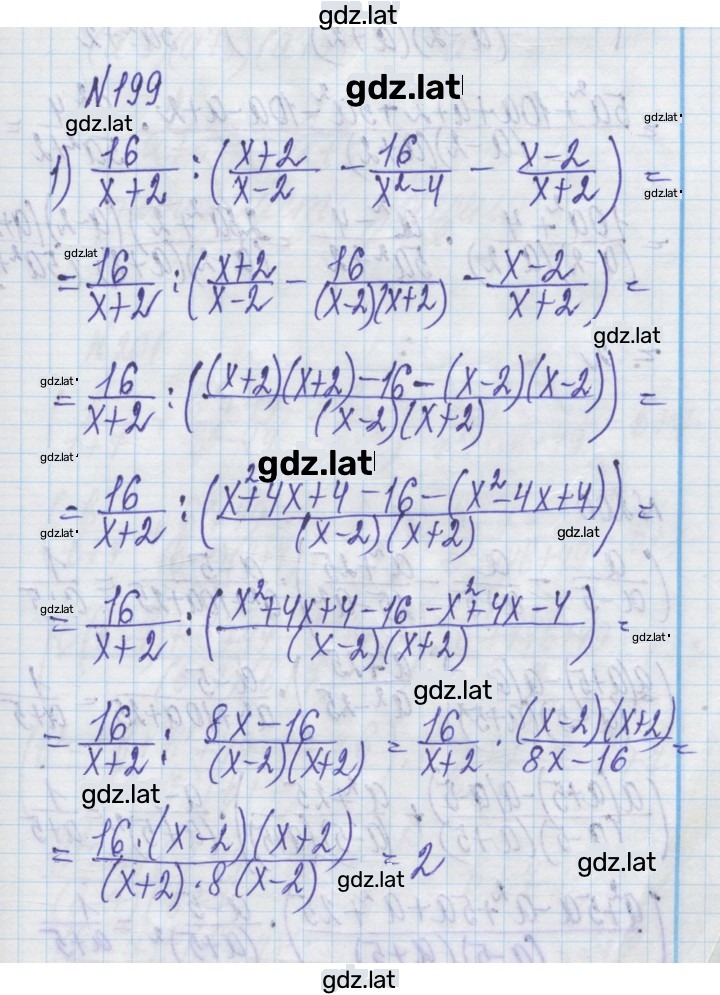 gdz.lat
№199 gdz.lat
gdz.lat gdz.lat
1) 16/(x+2) : ((x+2)/(x-2) - 16/(x²-4) - (x-2)/(x+2)) =
gdz.lat
gdz.lat
= 16/(x+2) : ((x+2)/(x-2) - 16/((x-2)(x+2)) - (x-2)/(x+2)) =
gdz.lat
gdz.lat
= 16/(x+2) : (((x+2)(x+2)-16-(x-2)(x-2))/((x-2)(x+2))) =
gdz.lat gdz.lat
= 16/(x+2) : ((x²+4x+4-16-(x²-4x+4))/((x-2)(x+2))) =
gdz.lat gdz.lat
gdz.lat
= 16/(x+2) : ((x²+4x+4-16-x²+4x-4)/((x-2)(x+2))) =
gdz.lat
gdz.lat
= 16/(x+2) : (8x-16)/((x-2)(x+2)) = 16/(x+2) · ((x-2)(x+2))/(8x-16) =
gdz.lat
= (16·(x-2)(x+2))/((x+2)·8(x-2)) = 2
gdz.lat gdz.lat
gdz.lat